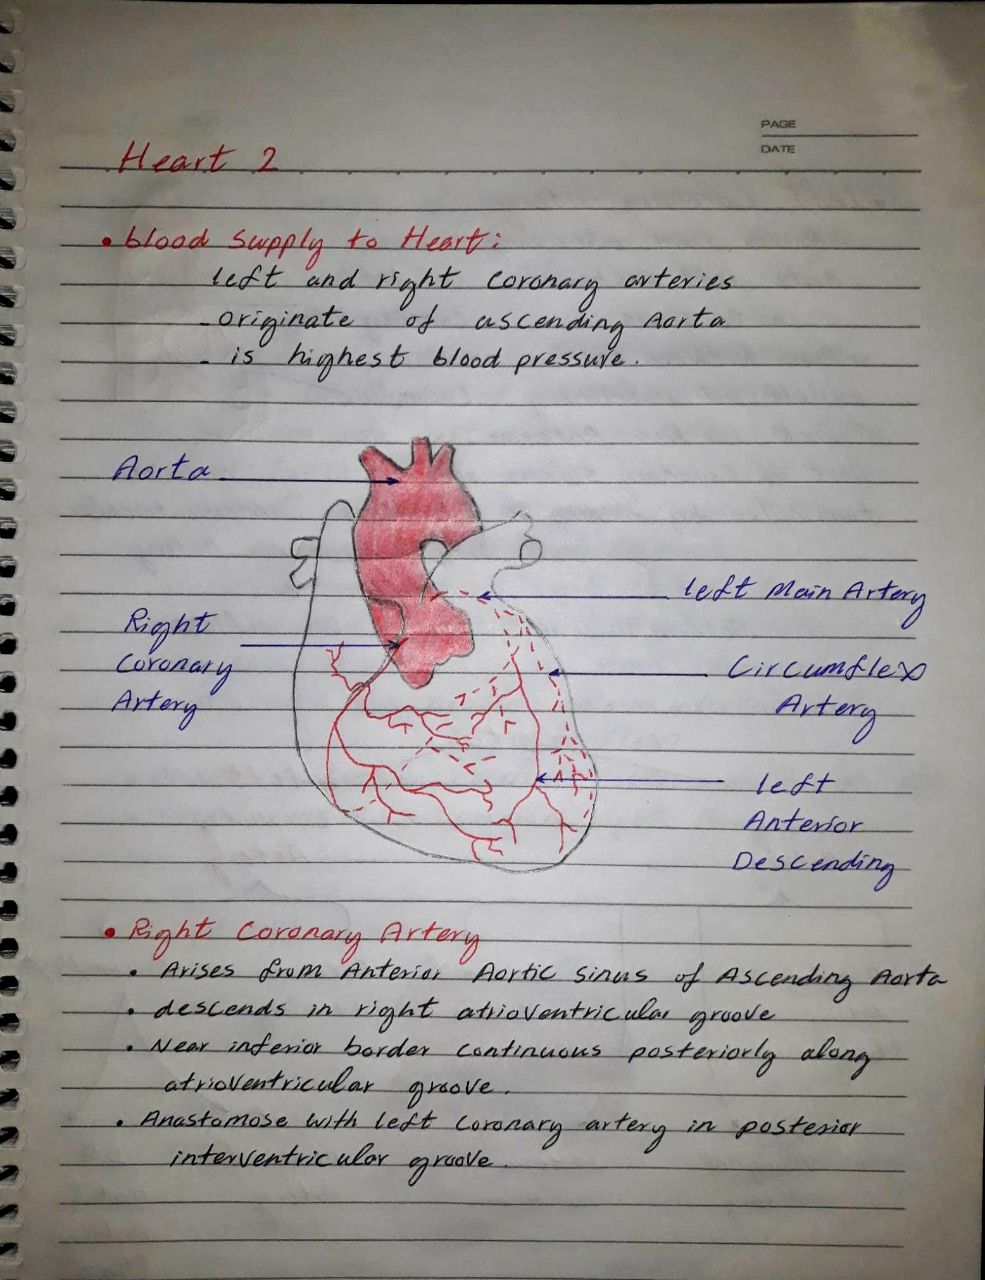 PAGE
DATE
Heart 2
• blood supply to Heart:
left and right coronary arteries
- originate of ascending Aorta
- is highest blood pressure.
Aorta
left Main Artery
Right
Coronary
Artery
Circumflex
Artery
left
Anterior
Descending
• Right Coronary Artery
• Arises from Anterior Aortic sinus of Ascending Aorta
• descends in right atrioventricular groove
• Near inferior border continuous posteriorly along
atrioventricular groove.
• Anastomose with left coronary artery in posterior
interventricular groove.